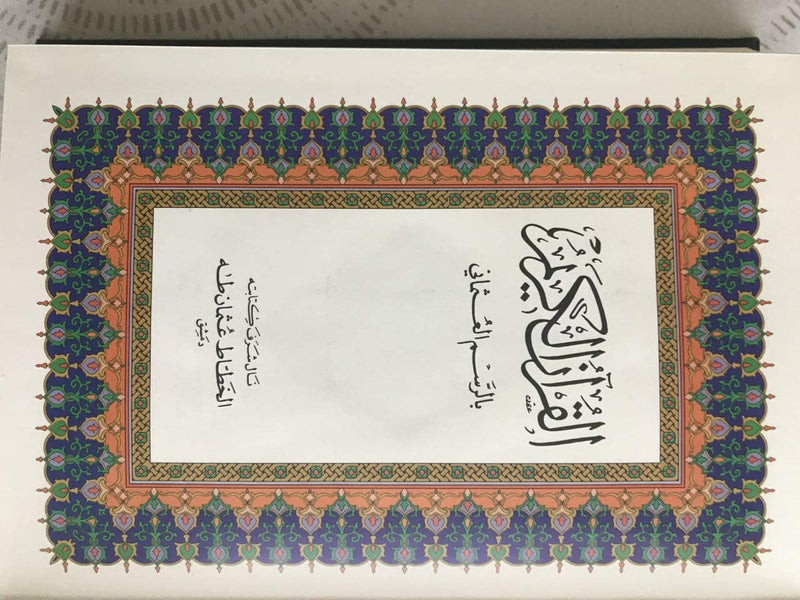 القرآن الكريم
بالرسم العثماني
نال شرف كتابته
الخطاط عثمان طه
دمشق